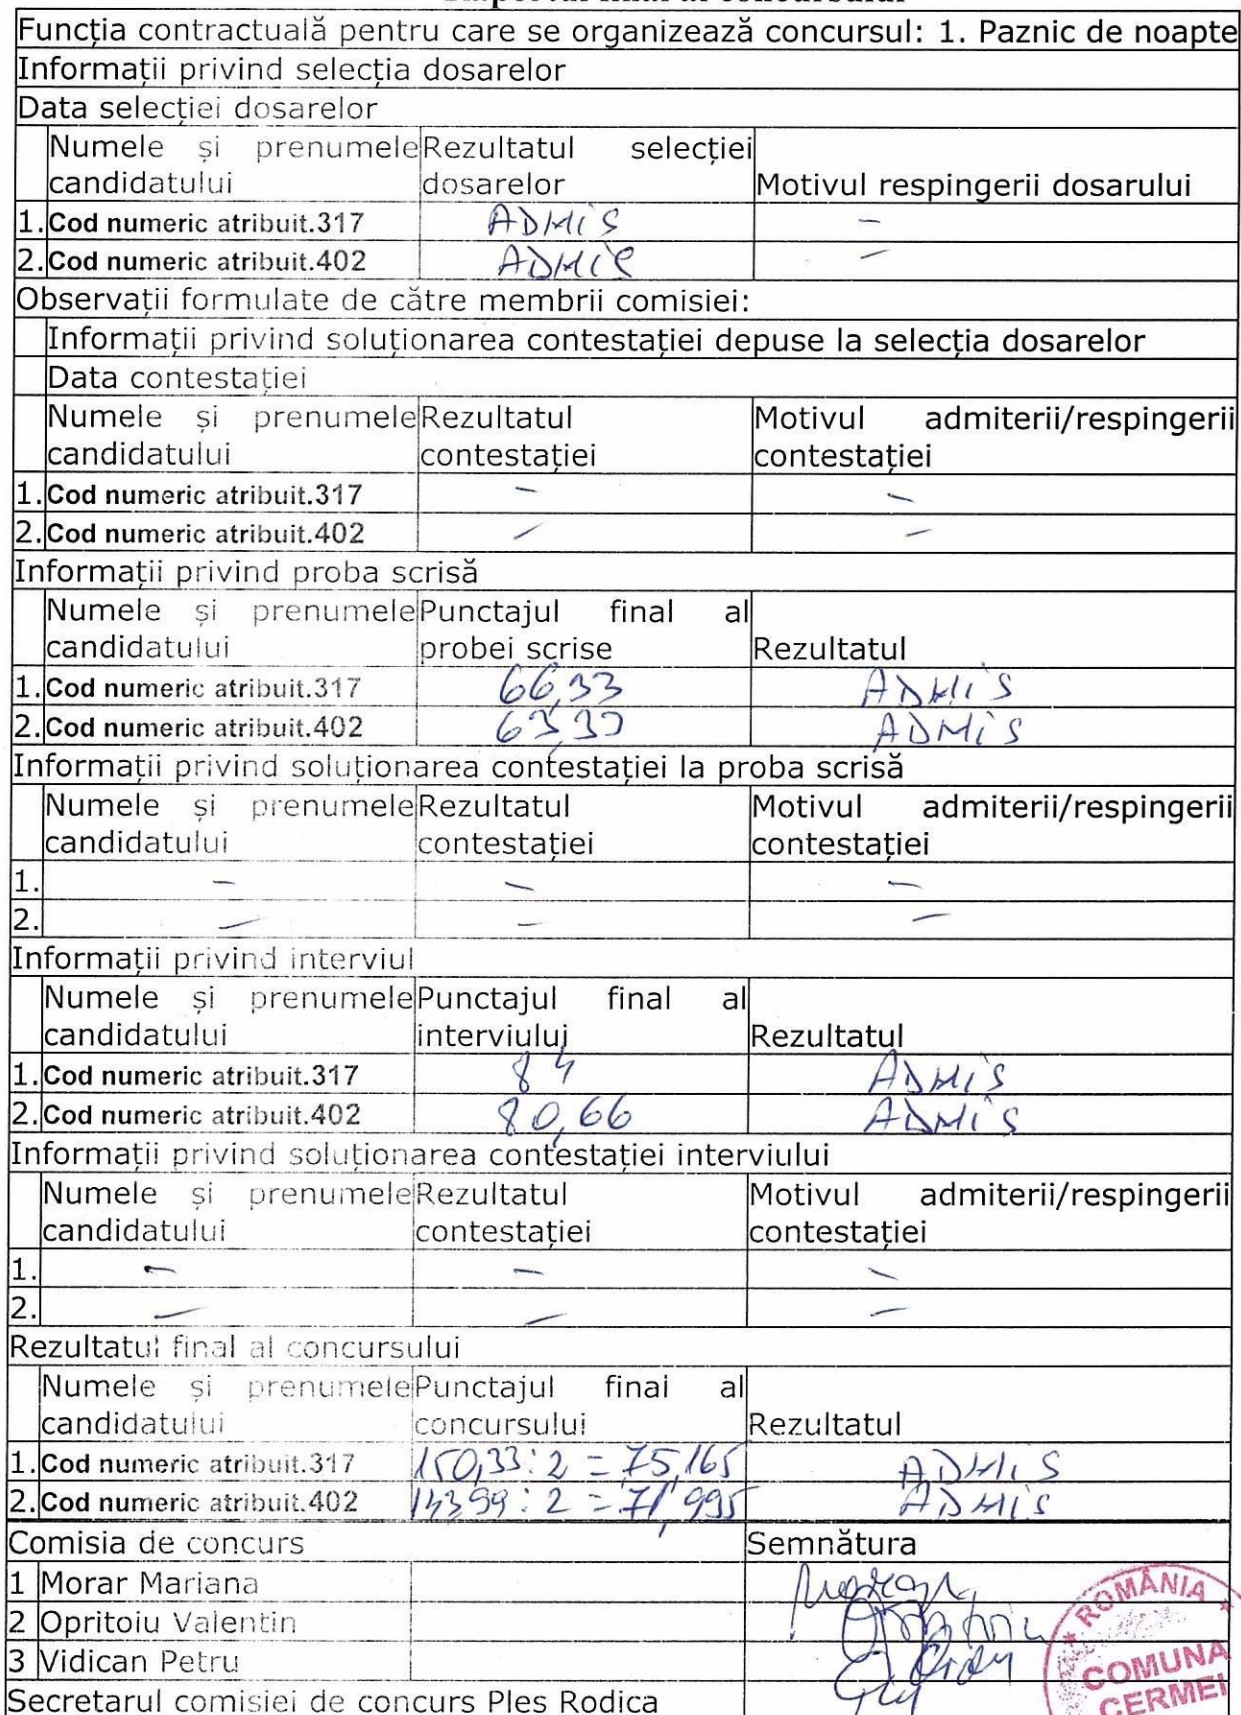 Raportul final al concursului
Funcția contractuală pentru care se organizează concursul: 1. Paznic de noapte
Informații privind selecția dosarelor
Data selecției dosarelor
Numele și prenumele candidatului Rezultatul selecției dosarelor Motivul respingerii dosarului
1. Cod numeric atribuit.317 ADMIS -
2. Cod numeric atribuit.402 ADMIS -
Observații formulate de către membrii comisiei:
Informații privind soluționarea contestației depuse la selecția dosarelor
Data contestației
Numele și prenumele candidatului Rezultatul contestației Motivul admiterii/respingerii contestației
1. Cod numeric atribuit.317 - -
2. Cod numeric atribuit.402 - -
Informații privind proba scrisă
Numele și prenumele candidatului Punctajul final al probei scrise Rezultatul
1. Cod numeric atribuit.317 66,33 ADMIS
2. Cod numeric atribuit.402 63,33 ADMIS
Informații privind soluționarea contestației la proba scrisă
Numele și prenumele candidatului Rezultatul contestației Motivul admiterii/respingerii contestației
1. - - -
2. - - -
Informații privind interviul
Numele și prenumele candidatului Punctajul final al interviului Rezultatul
1. Cod numeric atribuit.317 84 ADMIS
2. Cod numeric atribuit.402 80,66 ADMIS
Informații privind soluționarea contestației interviului
Numele și prenumele candidatului Rezultatul contestației Motivul admiterii/respingerii contestației
1. - - -
2. - - -
Rezultatul final al concursului
Numele și prenumele candidatului Punctajul final al concursului Rezultatul
1. Cod numeric atribuit.317 150,33 : 2 = 75,165 ADMIS
2. Cod numeric atribuit.402 143,99 : 2 = 71,995 ADMIS
Comisia de concurs Semnătura
1 Morar Mariana
2 Opritoiu Valentin
3 Vidican Petru
Secretarul comisiei de concurs Ples Rodica
ROMÂNIA
COMUNA
CERMEI